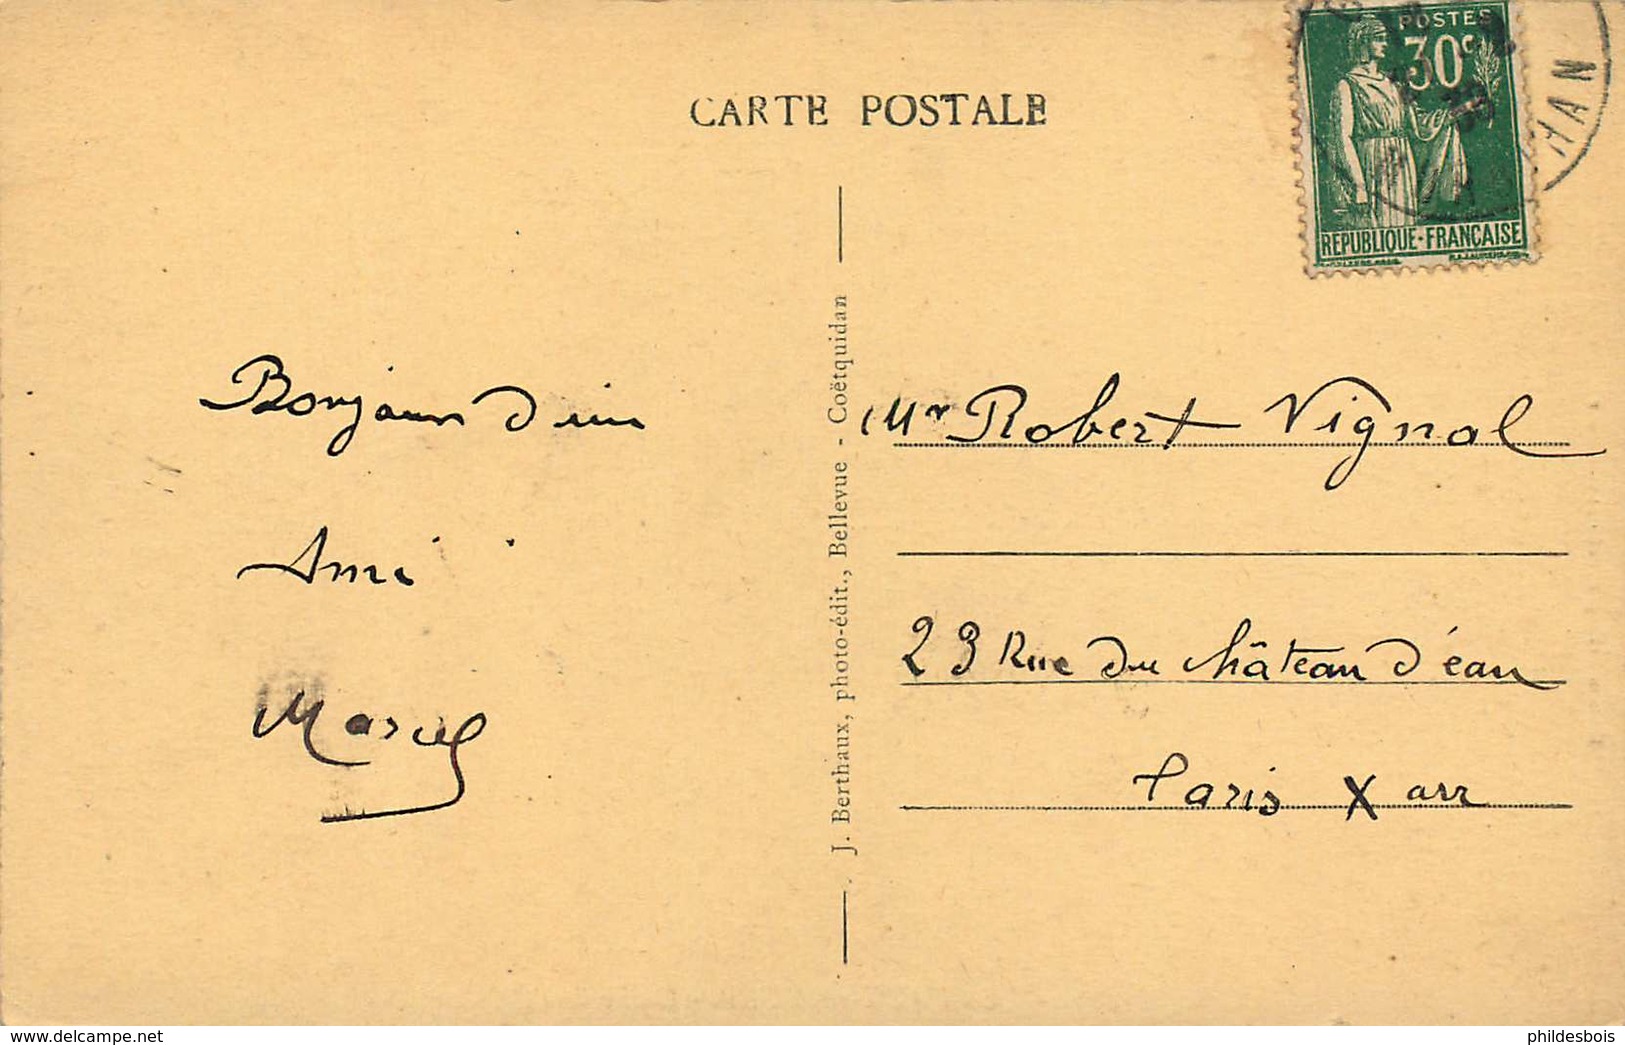 CARTE POSTALE
POSTES
30c
REPUBLIQUE-FRANÇAISE
Bonjour d'un
Ami
Marcel
J. Berthaux, photo-édit., Bellevue - Coëtquidan
Mr Robert Vignal
23 Rue du Château d'eau
Paris X arr
www.delcampe.net
phildesbois